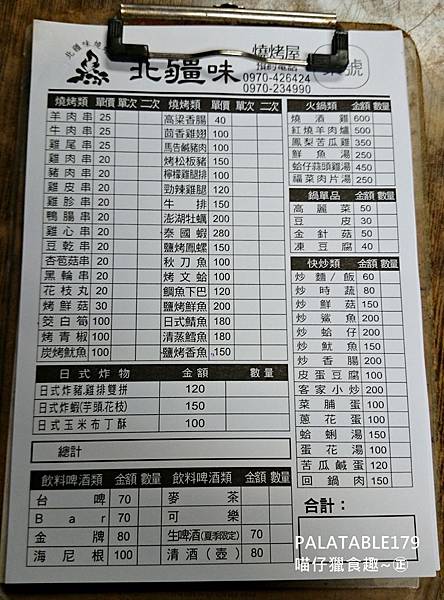 北疆味 燒烤屋
預約電話
0970-426424
0970-234990
號
燒烤類 單價 單次 二次
羊肉串 25
牛肉串 25
雞尾串 25
雞肉串 20
豬肉串 20
雞皮串 20
雞胗串 20
鴨腸串 20
雞心串 20
豆乾串 20
杏苞菇串 20
黑輪串 20
花枝丸 20
烤鮮菇 30
筊白筍 100
烤青椒 100
炭烤魷魚 100
燒烤類 單價 單次 二次
高梁香腸 40
茴香雞翅 100
馬告鹹豬肉 100
烤松板豬 150
檸檬雞腿排 100
勁辣雞腿 120
牛排 150
澎湖牡蠣 200
泰國蝦 280
鹽烤鳳螺 150
秋刀魚 100
烤文蛤 100
鯛魚下巴 120
鹽烤鮮魚 200
日式鯖魚 180
清蒸鱈魚 180
鹽烤香魚 150
火鍋類 金額 數量
燒酒雞 600
紅燒羊肉爐 500
鳳梨苦瓜雞 350
鮮魚湯 250
蛤仔蒜頭雞湯 450
福菜肉片湯 250
鍋單品 金額 數量
高麗菜 50
豆皮 30
金針菇 50
凍豆腐 40
快炒類 金額 數量
炒麵/飯 60
炒時蔬 80
炒鮮菇 150
炒鯊魚 200
炒蛤仔 200
炒魷魚 150
炒香腸 200
皮蛋豆腐 100
客家小炒 200
菜脯蛋 100
蔥花蛋 100
蛤蜊湯 150
蛋花湯 100
苦瓜鹹蛋 120
回鍋肉 150
日式炸物 金額 數量
日式炸豬.雞排雙拼 120
日式炸蝦(芋頭.花枝) 150
日式玉米布丁酥 100
總計
飲料啤酒類 金額 數量
台啤 70
Bar 70
金牌 80
海尼根 100
飲料啤酒類 金額 數量
麥茶
可樂
生啤酒(夏季限定) 70
清酒(壺) 80
合計：
PALATABLE179
喵仔獵食趣~㊣